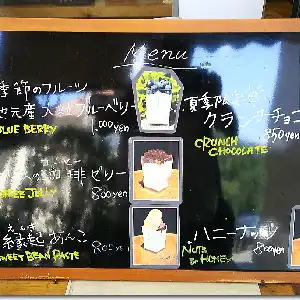 Menu
季節のフルーツ
地元産 大粒ブルーベリー
BLUE BERRY
1,000yen
コーヒー
珈琲ゼリー
COFFEE JELLY
800yen
えんぎ
縁起あんこ
SWEET BEAN PASTE
800yen
夏季限定
クランチチョコ
850yen
CRUNCH
CHOCOLATE
ハニーナッツ
NUTS
IN HONEY
800yen